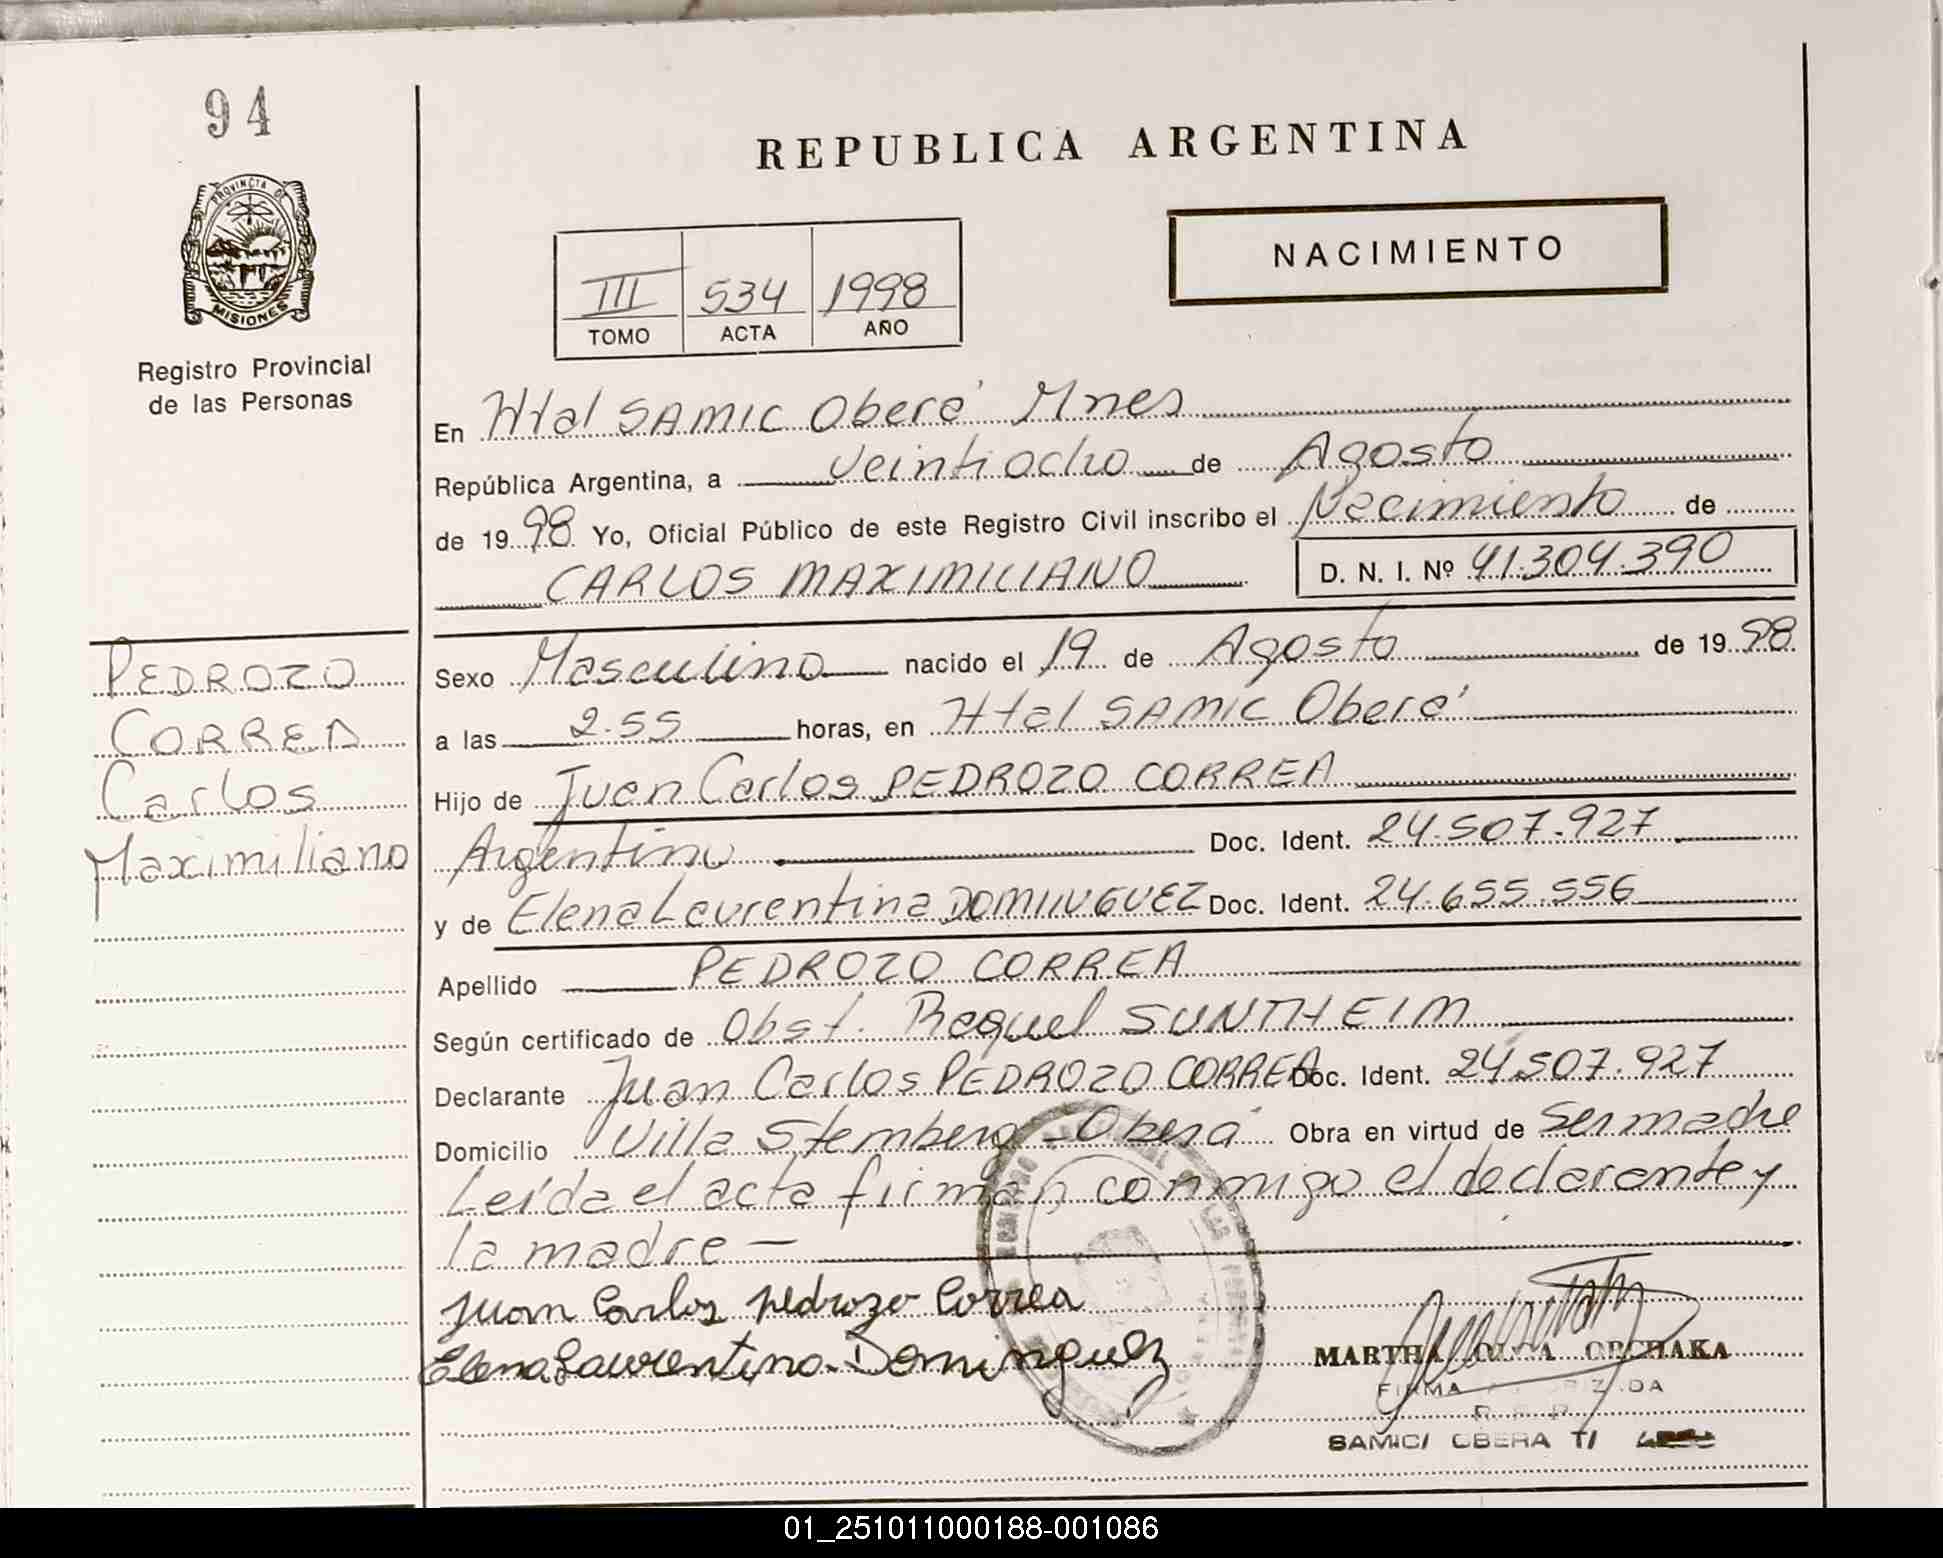 94
PROVINCIA DE
MISIONES
Registro Provincial
de las Personas
REPUBLICA ARGENTINA
NACIMIENTO
III 534 1998
TOMO ACTA AÑO
En Htal SAMIC Oberá Mnes
República Argentina, a veintiocho de Agosto
de 1998 Yo, Oficial Público de este Registro Civil inscribo el Nacimiento de
CARLOS MAXIMILIANO D. N. I. Nº 41.304.390
PEDROZO
CORREA
Carlos
Maximiliano
Sexo Masculino nacido el 19 de Agosto de 1998
a las 2.55 horas, en Htal SAMIC Oberá
Hijo de Juan Carlos PEDROZO CORREA
Argentino Doc. Ident. 24.507.927
y de Elena Laurentina DOMINGUEZ Doc. Ident. 24.655.556
Apellido PEDROZO CORREA
Según certificado de Obst. Raquel SUNTHEIM
Declarante Juan Carlos PEDROZO CORREA Doc. Ident. 24.507.927
Domicilio Villa Stemberg - Oberá Obra en virtud de Ser madre
Leída el acta firman conmigo el declarante y
la madre -
Juan Carlos pedrozo Correa
Elena Laurentina Dominguez
MARTHA ORCHAKA
FIRMA AUTORIZADA
R. P. P.
SAMIC/ OBERA
01_251011000188-001086